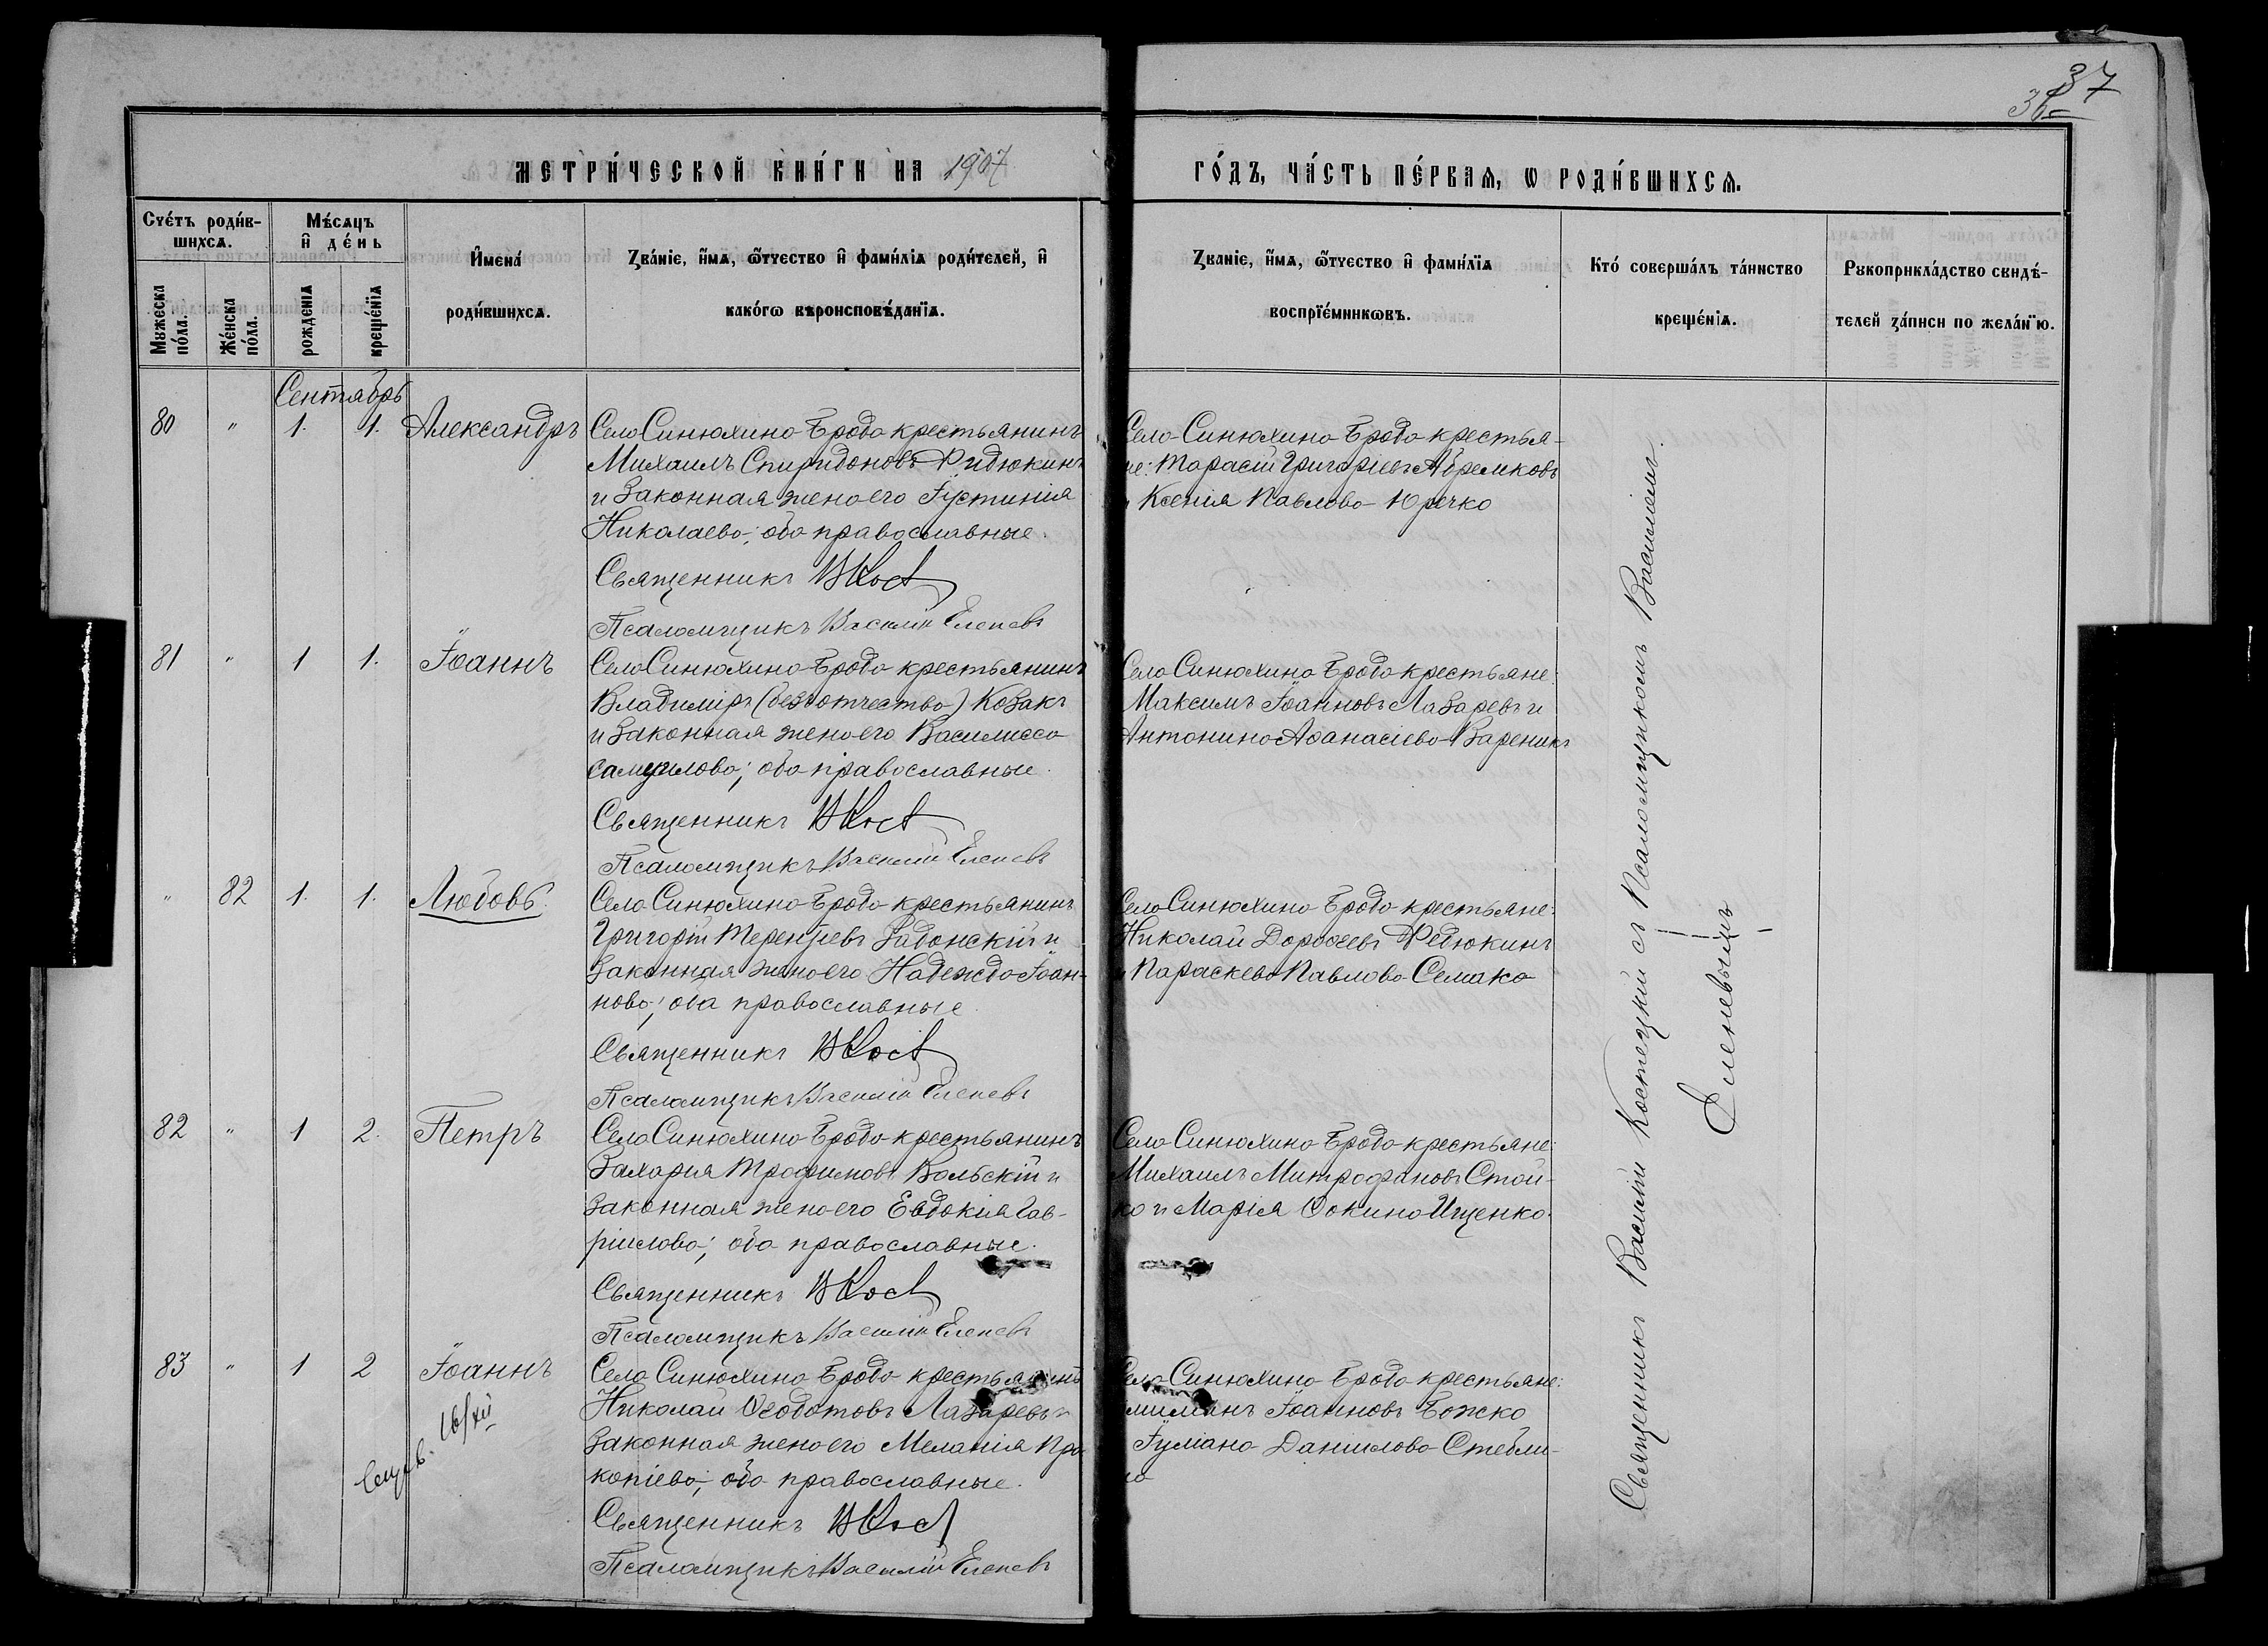 37
36
МЕТРИ́ЧЕСКОЙ КНИ́ГИ НА 1907
ГО́ДЪ, ЧА́СТЬ ПЕ́РВАѦ, Ѡ РОДИ́ВШИХСѦ.
Сче́тъ роди́в-
шихсѧ.
Мужеска по́ла.
Же́нска по́ла.
Мѣ́сѧцъ
и҆ де́нь
рожденїѧ
креще́нїѧ
И҆мена́
роди́вшихсѧ.
Зва́нїе, и҆́мѧ, ѻ҆́тчество и҆ фами́лїѧ роди́телей, и҆
како́гѡ вѣроисповѣ́данїѧ.
Званїе, и҆́мѧ, ѻ҆́тчество и҆ фами́лїѧ
воспрїе́мникѡвъ.
Кто́ соверша́лъ та́инство
креще́нїѧ.
Рукоприкла́дство свидѣ́-
телей за́писи по жела́нїю.
Сентябрь
80 " 1. 1. Александръ
Село Синюхина Брода крестьянинъ
Михаилъ Спиридоновъ Фидюкинъ
и законная жена его Іустинія
Николаева; оба православные.
Священникъ
Псаломщикъ Василій Еленевъ
Село Синюхина Брода крестья-
не: Тарасій Григоріевъ Абрамковъ
Ксенія Павлова Юречко
81 " 1 1. Іоаннъ
Село Синюхина Брода крестьянинъ
Владиміръ (безъ отчества) Козакъ
и законная жена его Василисса
Самуилова; оба православные.
Священникъ
Псаломщикъ Василій Еленевъ
Село Синюхина Брода крестьяне:
Максимъ Іоанновъ Лазаревъ и
Антонина Аѳанасіева Вареникъ
" 82 1. 1. Любовь.
Село Синюхина Брода крестьянинъ
Григорій Терентіевъ Задонскій и
законная жена его Надежда Іоан-
нова; оба православные
Священникъ
Псаломщикъ Василій Еленевъ
Село Синюхина Брода крестьяне:
Николай Дороѳеевъ Федюкинъ
и Параскева Павлова Семака
82 " 1 2. Петръ
Село Синюхина Брода крестьянинъ
Захарія Трофимовъ Вольскій и
законная жена его Евдокія Гав-
ріилова; оба православные.
Священникъ
Псаломщикъ Василій Еленевъ
Село Синюхина Брода крестьяне:
Михаилъ Митрофановъ Стой-
ко и Марія Ѳокина Ищенко.
83 " 1 2 Іоаннъ
Село Синюхина Брода крестьянинъ
Николай Ѳеодотовъ Лазаревъ и
законная жена его Меланія Про
копіева; оба православные.
Священникъ
Псаломщикъ Василій Еленевъ
Село Синюхина Брода крестьяне:
Іоанновъ Божко
Іуліана Данилова Стебли-
Священникъ Василій Костецкій съ Псаломщикомъ Василіемъ
Еленевымъ